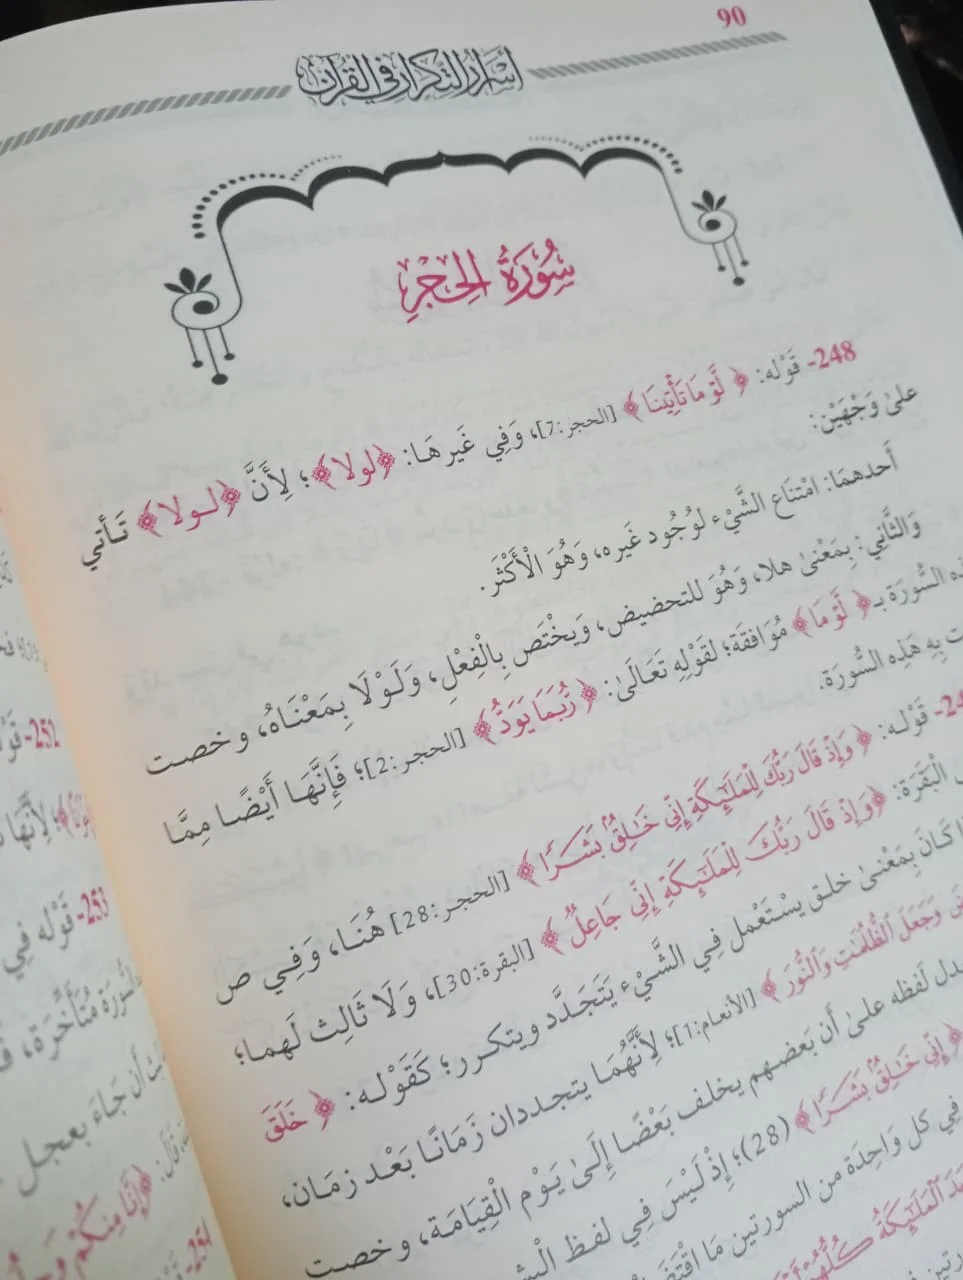 90
أسرار التكرار في القرآن
سُورَةُ الحِجْرِ
248- قَوْله: ﴿ لَّوْ مَا تَأْتِينَا ﴾ [الحجر:7]، وَفِي غَيرهَا: ﴿لولا﴾؛ لِأَنَّ ﴿لولا﴾ تَأتي
علىٰ وَجْهَيْن:
أَحدهمَا: امْتنَاع الشَّيْء لوُجُود غَيره، وَهُوَ الْأَكْثَر.
وَالثَّانِي: بِمَعْنىٰ هلا، وَهُوَ للتحضيض، وَيخْتَص بِالْفِعْلِ، وَلَوْلَا بِمَعْنَاهُ، وخصت
السُّورَة بـ﴿ لَّوْ مَا﴾ مُوَافقَة؛ لقَوْلِهِ تَعَالَىٰ: ﴿ رُّبَمَا يَوَدُّ﴾ [الحجر:2]؛ فَإِنَّهَا أَيْضًا مِمَّا
بِهِ هَذِه السُّورَة.
قَوْله: ﴿ وَإِذْ قَالَ رَبُّكَ لِلْمَلَٰٓئِكَةِ إِنِّي خَٰلِقُۢ بَشَرًا ﴾ [الحجر:28] هُنَا، وَفِي ص
الْبَقَرَة: ﴿وَإِذْ قَالَ رَبُّكَ لِلْمَلَٰٓئِكَةِ إِنِّي جَاعِلٌ﴾ [البقرة:30]، وَلَا ثَالِث لَهما؛
كَانَ بِمَعْنىٰ خلق يسْتَعْمل فِي الشَّيْء يَتَجَدَّد ويتكرر؛ كَقَوْله: ﴿ خَلَقَ
وَجَعَلَ الظُّلُمَٰتِ وَالنُّورَ ﴾ [الأنعام:1]؛ لِأَنَّهُمَا يتجددان زَمَانًا بَعْد زمَان،
لَفظه علىٰ أَن بَعضهم يخلف بَعْضًا إِلَىٰ يَوْم الْقِيَامَة، وخصت
﴿ إِنِّي خَٰلِقُۢ بَشَرًا﴾ (28)؛ إِذْ لَيْسَ فِي لفظ
فِي كل وَاحِدَة من السورتين مَا
الْمَلَٰٓئِكَةُ كُلُّهُمْ
252- قَوْ
لِأَنَّهَا
253- قَوْله فِي
السُّورَة مُتَأَخّرَة،
أَن جَاءَ بعجل
قَالَ: ﴿إِنَّا مِنكُمْ
254-